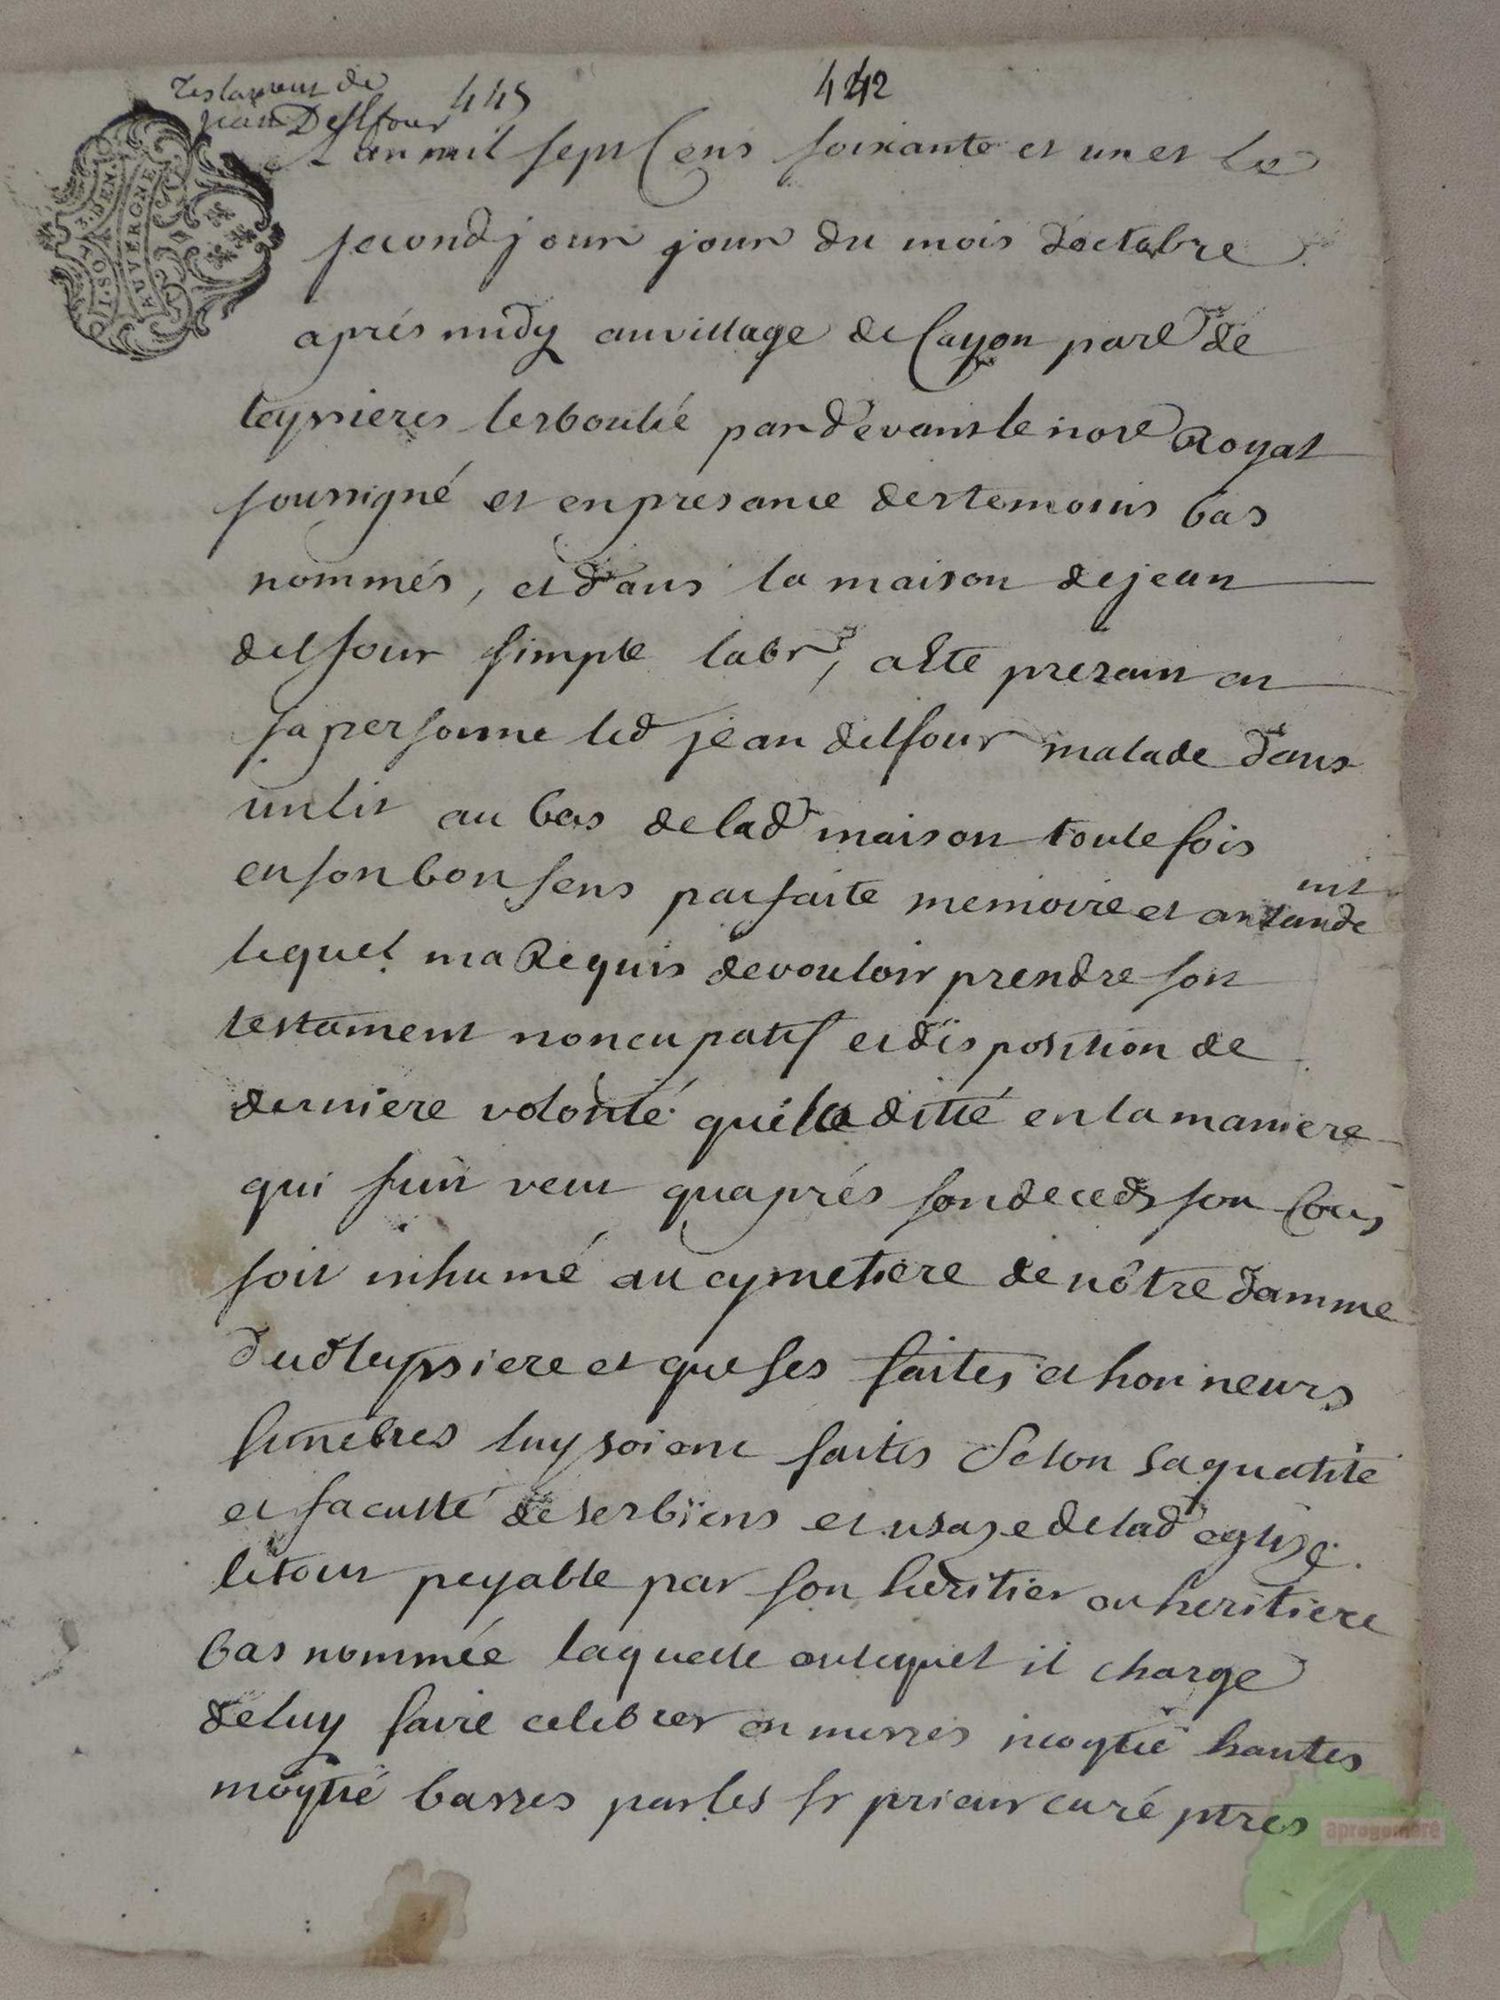 testament de
jean Delfour 445
442
G.DENL.
AUVERGNE
L an mil sept Cens soixante et un et le
second jour jour du mois d'octobre
aprés midy au village de Cayon parse de
teyssieres lesboulié par d'evant le nore Royal
soussigné et en presance des temoins bas
nommés, et dans la maison de jean
delfour simple labr, a Eté presant en
sa personne led jean delfour malade dans
un lit au bas de lad maison toute fois
en son bon sens parfaite memoire et antande
mt
lequel ma Requis de vouloir prendre son
testament noncupatif et disposition de
derniere volonté qu'il a ditté en la maniere
qui suit veut qu'aprés son deceds son Cors
soit inhumé au cymetiere de nôtre damme
dud teyssiere et que ses faites et honneurs
funebres luy soient faites Selon sa qualité
et faculté de ses biens et usage de lad eglize
le tout peyable par son heritier ou heritiere
bas nommée laquelle ou lequel il charge
de luy faire celebrer en messes moytié hautes
moytié basses par les sr prieur curé ptres
aprogemere